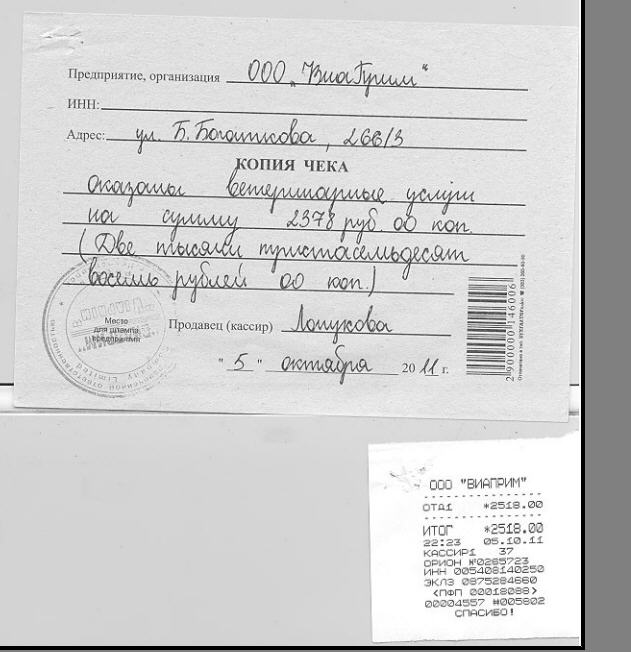 Предприятие, организация ООО „ВиаПрим“
ИНН:
Адрес: ул. Б. Богаткова, 266/3
КОПИЯ ЧЕКА
оказаны ветеринарные услуги
на сумму 2378 руб. 00 коп.
(Две тысячи тристасемьдесят
восемь рублей 00 коп.)
Место
для штампа
предприятия
Продавец (кассир) Лопукова
" 5 " октября 20 11 г.
2 900000 146006
ООО "ВИАПРИМ"
ОТД1 *2518.00
ИТОГ *2518.00
22:23 05.10.11
КАССИР1 37
ОРИОН №0285723
ИНН 005408140250
ЭКЛЗ 0875284660
<ПФП 00018088>
00004557 #005802
СПАСИБО!